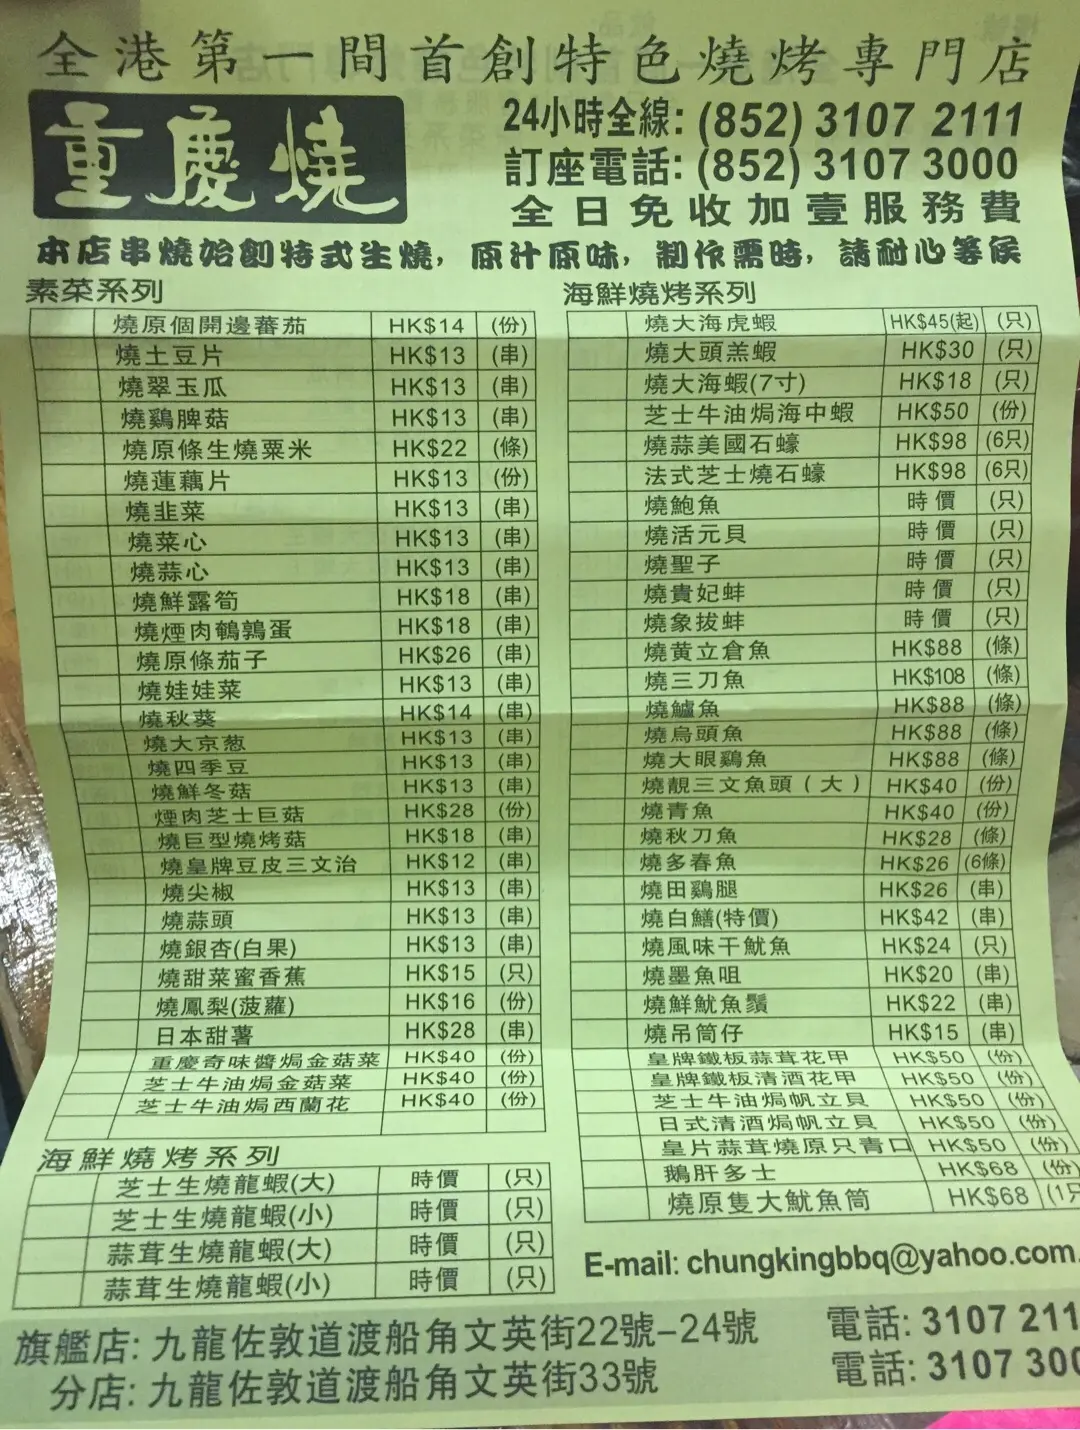 全港第一間首創特色燒烤專門店
重慶燒
24小時全線: (852) 3107 2111
訂座電話: (852) 3107 3000
全日免收加壹服務費
本店串燒始創特式生燒，原汁原味，制作需時，請耐心等侯
素菜系列
燒原個開邊蕃茄 HK$14 (份)
燒土豆片 HK$13 (串)
燒翠玉瓜 HK$13 (串)
燒鷄脾菇 HK$13 (串)
燒原條生燒粟米 HK$22 (條)
燒蓮藕片 HK$13 (份)
燒韭菜 HK$13 (串)
燒菜心 HK$13 (串)
燒蒜心 HK$13 (串)
燒鮮露筍 HK$18 (串)
燒煙肉鵪鶉蛋 HK$18 (串)
燒原條茄子 HK$26 (串)
燒娃娃菜 HK$13 (串)
燒秋葵 HK$14 (串)
燒大京葱 HK$13 (串)
燒四季豆 HK$13 (串)
燒鮮冬菇 HK$13 (串)
煙肉芝士巨菇 HK$28 (份)
燒巨型燒烤菇 HK$18 (串)
燒皇牌豆皮三文治 HK$12 (串)
燒尖椒 HK$13 (串)
燒蒜頭 HK$13 (串)
燒銀杏(白果) HK$13 (串)
燒甜菜蜜香蕉 HK$15 (只)
燒鳳梨(菠蘿) HK$16 (份)
日本甜薯 HK$28 (串)
重慶奇味醬焗金菇菜 HK$40 (份)
芝士牛油焗金菇菜 HK$40 (份)
芝士牛油焗西蘭花 HK$40 (份)
海鮮燒烤系列
芝士生燒龍蝦(大) 時價 (只)
芝士生燒龍蝦(小) 時價 (只)
蒜茸生燒龍蝦(大) 時價 (只)
蒜茸生燒龍蝦(小) 時價 (只)
海鮮燒烤系列
燒大海虎蝦 HK$45(起) (只)
燒大頭羔蝦 HK$30 (只)
燒大海蝦(7寸) HK$18 (只)
芝士牛油焗海中蝦 HK$50 (份)
燒蒜美國石蠔 HK$98 (6只)
法式芝士燒石蠔 HK$98 (6只)
燒鮑魚 時價 (只)
燒活元貝 時價 (只)
燒聖子 時價 (只)
燒貴妃蚌 時價 (只)
燒象拔蚌 時價 (只)
燒黃立倉魚 HK$88 (條)
燒三刀魚 HK$108 (條)
燒鱸魚 HK$88 (條)
燒烏頭魚 HK$88 (條)
燒大眼鷄魚 HK$88 (條)
燒靚三文魚頭（大） HK$40 (份)
燒青魚 HK$40 (份)
燒秋刀魚 HK$28 (條)
燒多春魚 HK$26 (6條)
燒田鷄腿 HK$26 (串)
燒白鱔(特價) HK$42 (串)
燒風味干魷魚 HK$24 (只)
燒墨魚咀 HK$20 (串)
燒鮮魷魚鬚 HK$22 (串)
燒吊筒仔 HK$15 (串)
皇牌鐵板蒜茸花甲 HK$50 (份)
皇牌鐵板清酒花甲 HK$50 (份)
芝士牛油焗帆立貝 HK$50 (份)
日式清酒焗帆立貝 HK$50 (份)
皇片蒜茸燒原只青口 HK$50 (份)
鵝肝多士 HK$68 (份)
燒原隻大魷魚筒 HK$68 (1只
E-mail: chungkingbbq@yahoo.com.
旗艦店: 九龍佐敦道渡船角文英街22號-24號 電話: 3107 211
分店: 九龍佐敦道渡船角文英街33號 電話: 3107 300